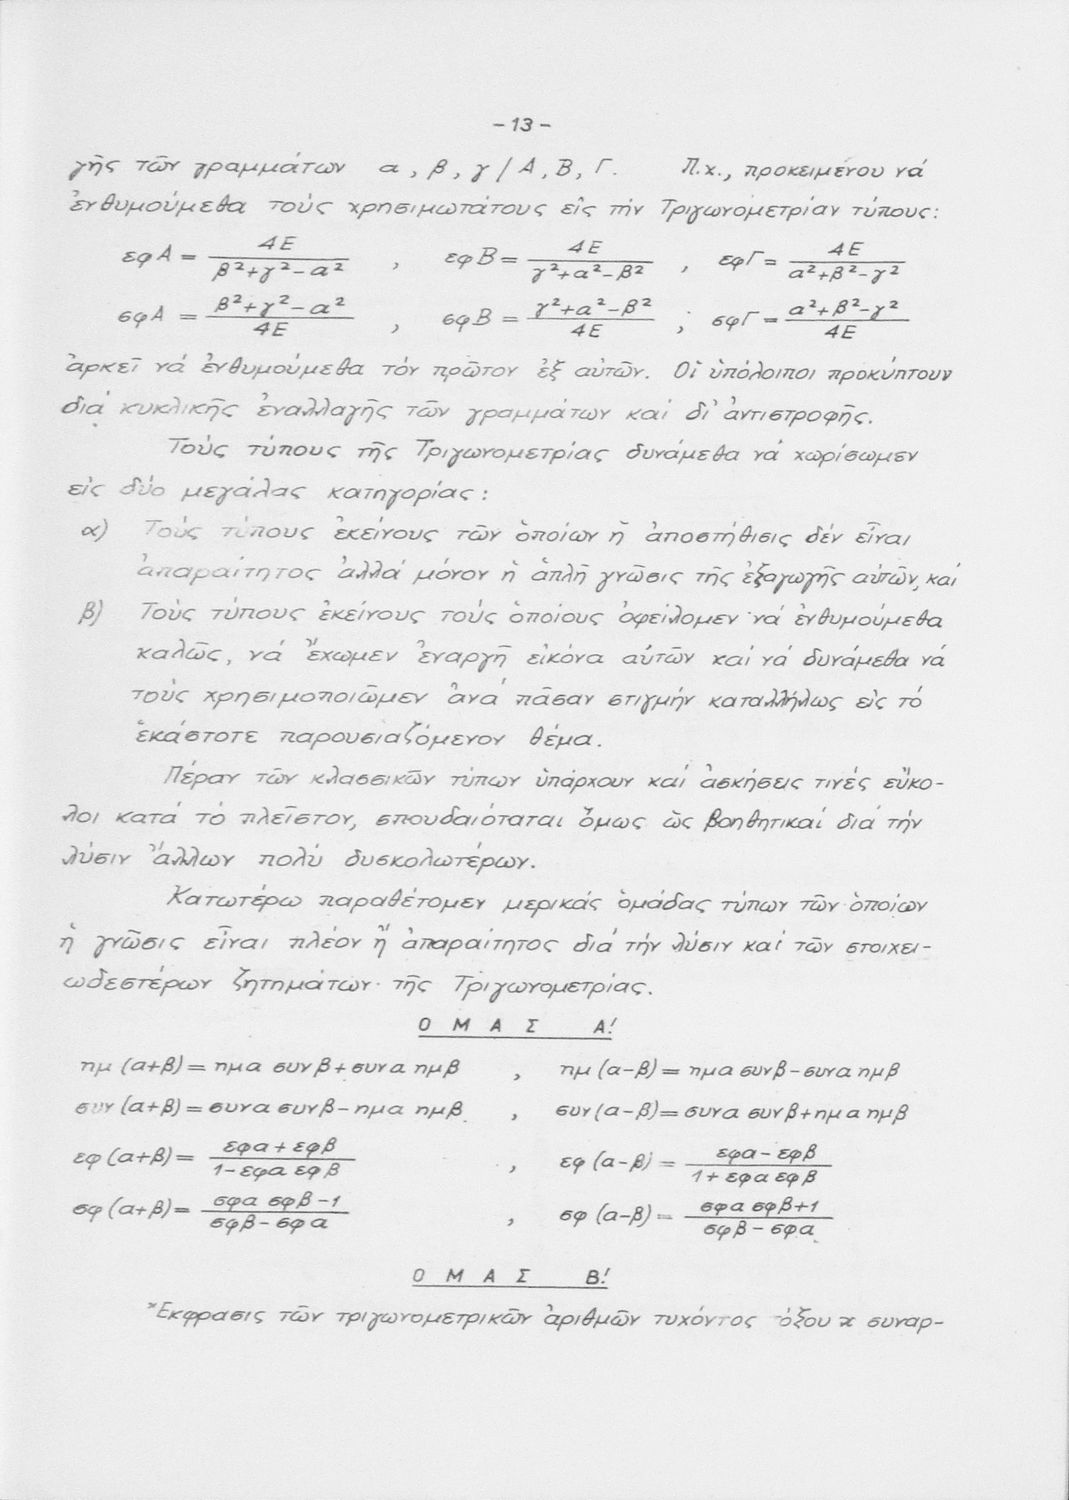 -13-
γῆς τῶν γραμμάτων α, β, γ / Α, Β, Γ. Π.χ., προκειμένου νά
ἐνθυμούμεθα τούς χρησιμωτάτους εἰς τήν Τριγωνομετρίαν τύπους:
εφΑ = 4Ε / β²+γ²-α² , εφΒ = 4Ε / γ²+α²-β² , εφΓ = 4Ε / α²+β²-γ²
σφΑ = β²+γ²-α² / 4Ε , σφΒ = γ²+α²-β² / 4Ε ; σφΓ = α²+β²-γ² / 4Ε
ἀρκεῖ νά ἐνθυμούμεθα τόν πρῶτον ἐξ αὐτῶν. Οἱ ὑπόλοιποι προκύπτουν
διά κυκλικῆς ἐναλλαγῆς τῶν γραμμάτων καί δι᾽ ἀντιστροφῆς.
Τούς τύπους τῆς Τριγωνομετρίας δυνάμεθα νά χωρίσωμεν
εἰς δύο μεγάλας κατηγορίας:
α) Τούς τύπους ἐκείνους τῶν ὁποίων ἡ ἀποστήθισις δέν εἶναι
ἀπαραίτητος ἀλλά μόνον ἡ ἁπλῆ γνῶσις τῆς ἐξαγωγῆς αὐτῶν, καί
β) Τούς τύπους ἐκείνους τούς ὁποίους ὀφείλομεν νά ἐνθυμούμεθα
καλῶς, νά ἔχωμεν ἐναργῆ εἰκόνα αὐτῶν καί νά δυνάμεθα νά
τούς χρησιμοποιῶμεν ἀνά πᾶσαν στιγμήν καταλλήλως εἰς τό
ἑκάστοτε παρουσιαζόμενον θέμα.
Πέραν τῶν κλασσικῶν τύπων ὑπάρχουν καί ἀσκήσεις τινές εὔκο-
λοι κατά τό πλεῖστον, σπουδαιόταται ὅμως ὡς βοηθητικαί διά τήν
λύσιν ἄλλων πολύ δυσκολωτέρων.
Κατωτέρω παραθέτομεν μερικάς ὁμάδας τύπων τῶν ὁποίων
ἡ γνῶσις εἶναι πλέον ἤ ἀπαραίτητος διά τήν λύσιν καί τῶν στοιχει-
ωδεστέρων ζητημάτων τῆς Τριγωνομετρίας.
Ο Μ Α Σ Α!
ημ (α+β) = ημα συνβ + συνα ημβ , ημ (α-β) = ημα συνβ - συνα ημβ
συν (α+β) = συνα συνβ - ημα ημβ , συν (α-β) = συνα συνβ + ημα ημβ
εφ (α+β) = εφα + εφβ / 1 - εφα εφβ , εφ (α-β) = εφα - εφβ / 1 + εφα εφβ
σφ (α+β) = σφα σφβ - 1 / σφβ - σφα , σφ (α-β) = σφα σφβ+1 / σφβ - σφα
Ο Μ Α Σ Β!
Ἔκφρασις τῶν τριγωνομετρικῶν ἀριθμῶν τυχόντος τόξου x συναρ-